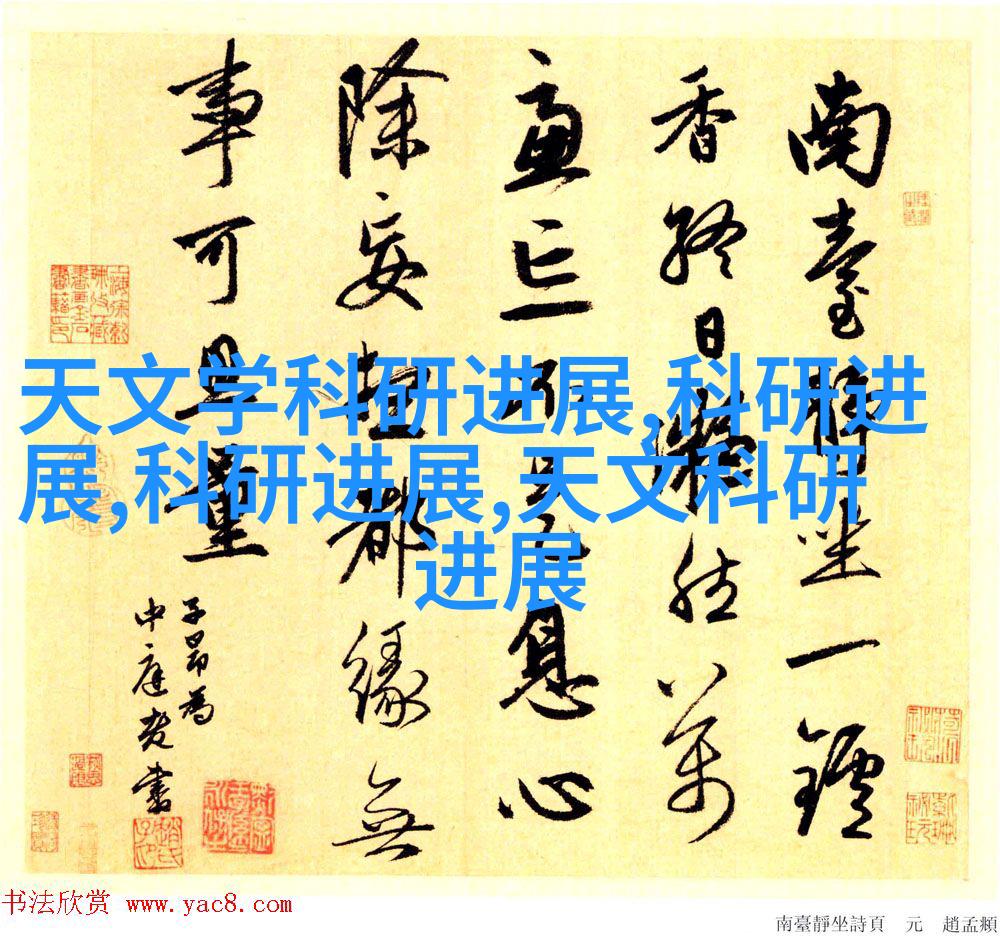 天文学科研进展,科研进
展,科研进展,天文科研
进展
南臺靜坐一鑪
香終日凝然萬
慮亡不是息心
除妄想都緣無
事可思量
子昂為
中庭老書
书法欣赏 www.yac8.com
南臺靜坐詩頁 元 趙孟頫